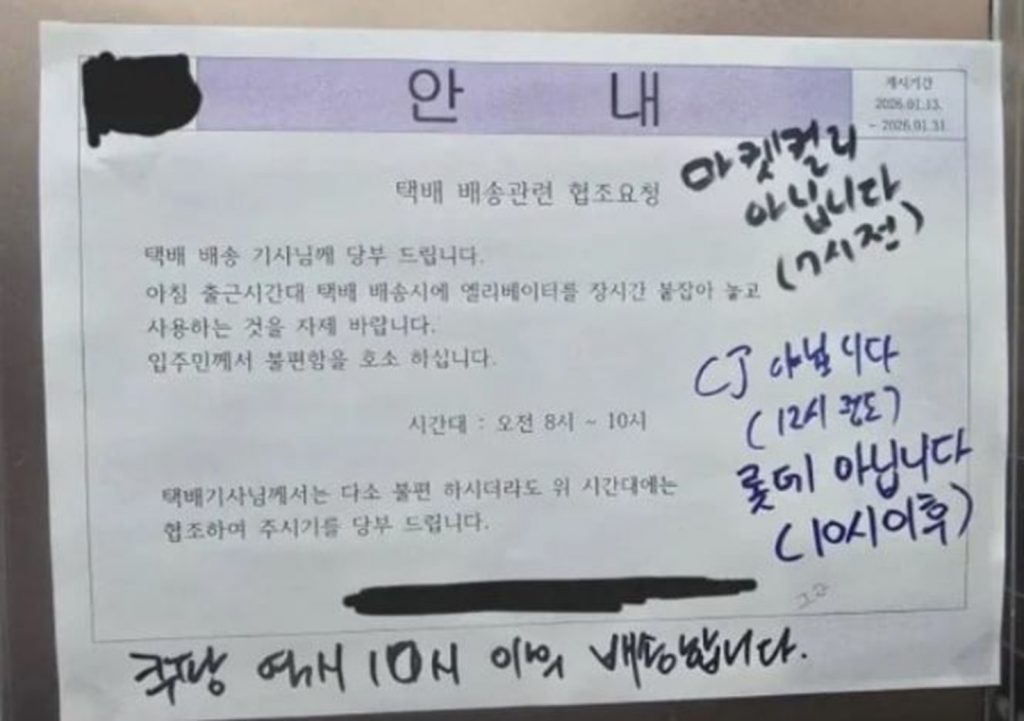 안 내
게시기간
2026.01.13.
~ 2026.01.31
택배 배송관련 협조요청
마켓컬리
아닙니다
(7시전)
택배 배송 기사님께 당부 드립니다.
아침 출근시간대 택배 배송시에 엘리베이터를 장시간 붙잡아 놓고
사용하는 것을 자제 바랍니다.
입주민께서 불편함을 호소 하십니다.
CJ 아닙니다
(12시 정도)
시간대 : 오전 8시 ~ 10시
롯데 아닙니다
(10시이후)
택배기사님께서는 다소 불편 하시더라도 위 시간대에는
협조하여 주시기를 당부 드립니다.
쿠팡 역시 10시 이후 배송합니다.